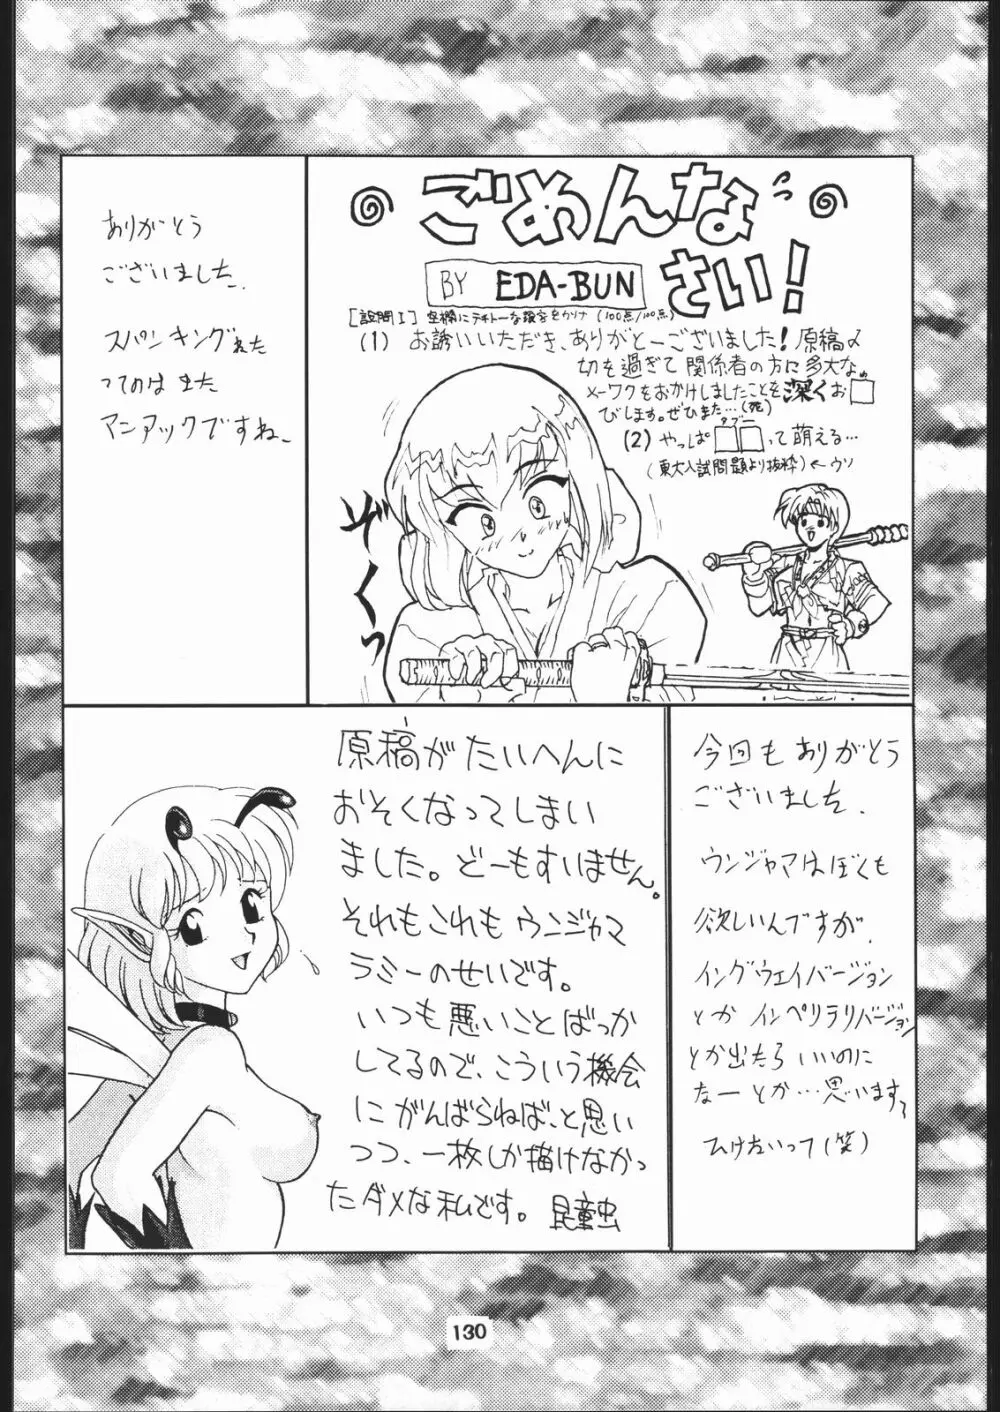 ありがとう
ございました。
スパンキングねた
ってのは また
マニアックですね。
ごめんな
さい!
BY EDA-BUN
[設問I] 空欄にテキトーな数字をかけ (100点/100点)
(1) お誘いいただき、ありがとーございました! 原稿〆
切を過ぎて関係者の方に多大な
メーワクをおかけしましたことを深くお□
びします。ぜひまた…(死)
タブー
(2) やっぱ□□って萌える…
(東大入試問題より抜粋)←ウソ
ぞくっ
原稿がたいへんに
おそくなってしまい
ました。どーもすいません。
それもこれもウンジャマ
ラミーのせいです。
いつも悪いことばっか
してるので、こういう機会
にがんばらねば、と思い
つつ、一枚しか描けなかっ
たダメな私です。 昆童虫
今回も ありがとう
ございました。
ウンジャマはぼくも
欲しいんですが、
イングウェイバージョン
とか インペリテリバージョン
とか出たら いいのに
なーとか…思います。
ひけないって(笑)
130